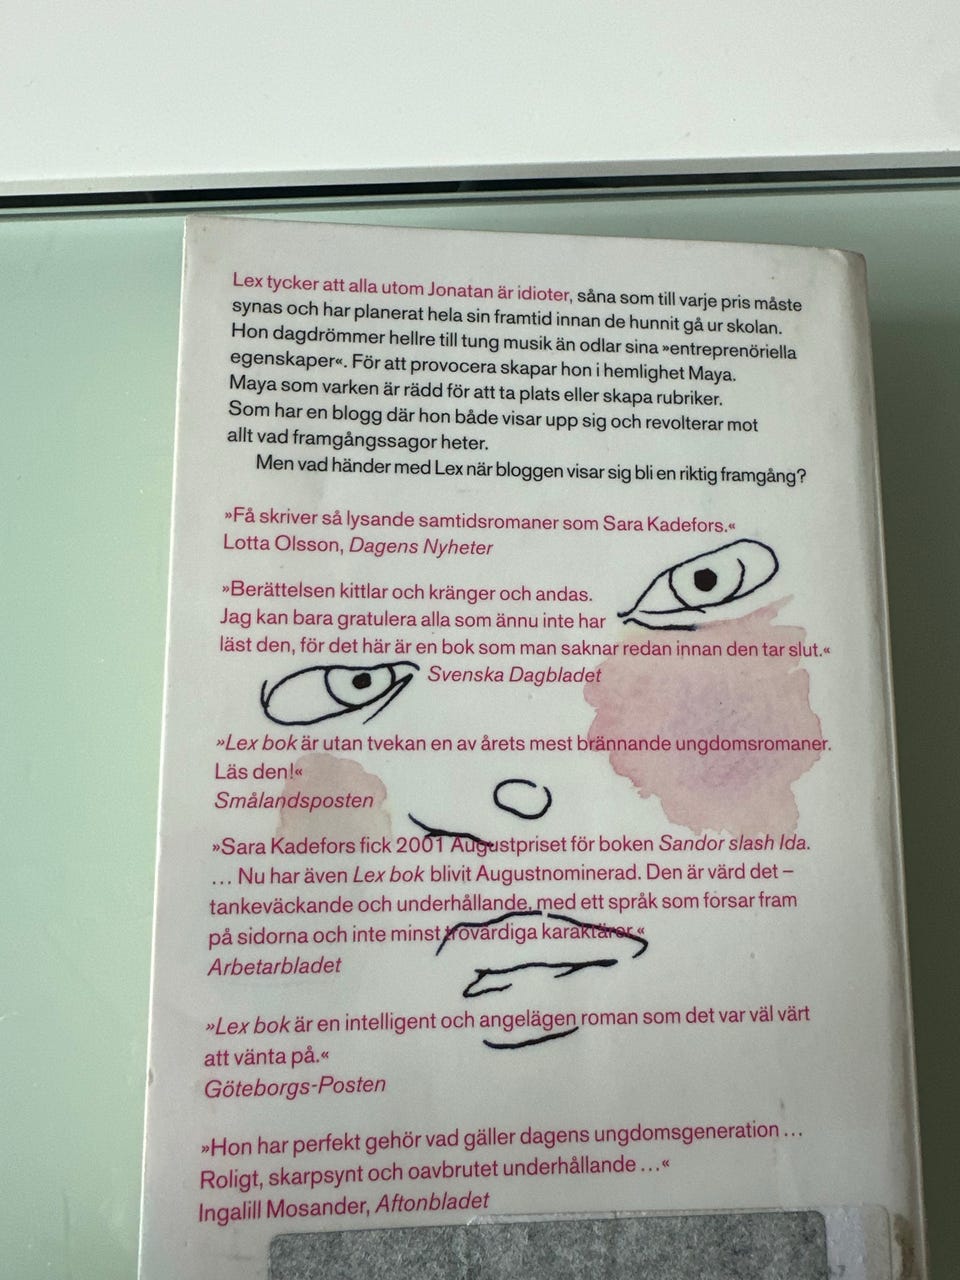 Lex tycker att alla utom Jonatan är idioter, såna som till varje pris måste
synas och har planerat hela sin framtid innan de hunnit gå ur skolan.
Hon dagdrömmer hellre till tung musik än odlar sina »entreprenöriella
egenskaper«. För att provocera skapar hon i hemlighet Maya.
Maya som varken är rädd för att ta plats eller skapa rubriker.
Som har en blogg där hon både visar upp sig och revolterar mot
allt vad framgångssagor heter.
Men vad händer med Lex när bloggen visar sig bli en riktig framgång?
»Få skriver så lysande samtidsromaner som Sara Kadefors.«
Lotta Olsson, Dagens Nyheter
»Berättelsen kittlar och kränger och andas.
Jag kan bara gratulera alla som ännu inte har
läst den, för det här är en bok som man saknar redan innan den tar slut.«
Svenska Dagbladet
»Lex bok är utan tvekan en av årets mest brännande ungdomsromaner.
Läs den!«
Smålandsposten
»Sara Kadefors fick 2001 Augustpriset för boken Sandor slash Ida.
... Nu har även Lex bok blivit Augustnominerad. Den är värd det –
tankeväckande och underhållande, med ett språk som forsar fram
på sidorna och inte minst trovärdiga karaktärer.«
Arbetarbladet
»Lex bok är en intelligent och angelägen roman som det var väl värt
att vänta på.«
Göteborgs-Posten
»Hon har perfekt gehör vad gäller dagens ungdomsgeneration ...
Roligt, skarpsynt och oavbrutet underhållande ...«
Ingalill Mosander, Aftonbladet